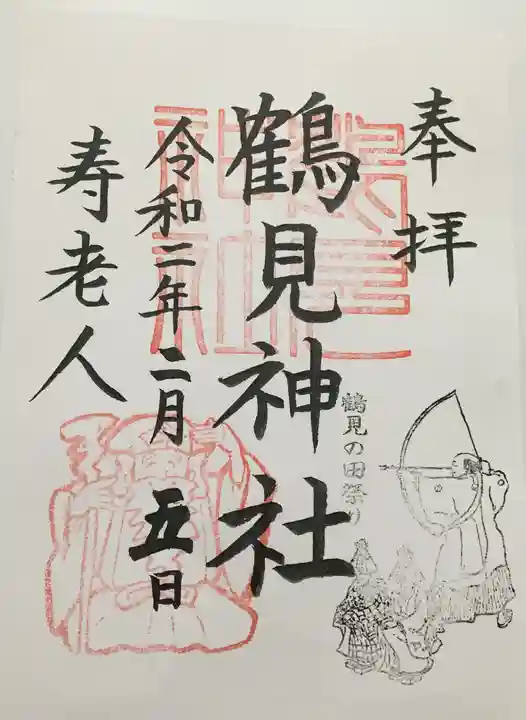 奉拝
鶴見の田祭り
鶴見神社
令和三年二月五日
寿老人